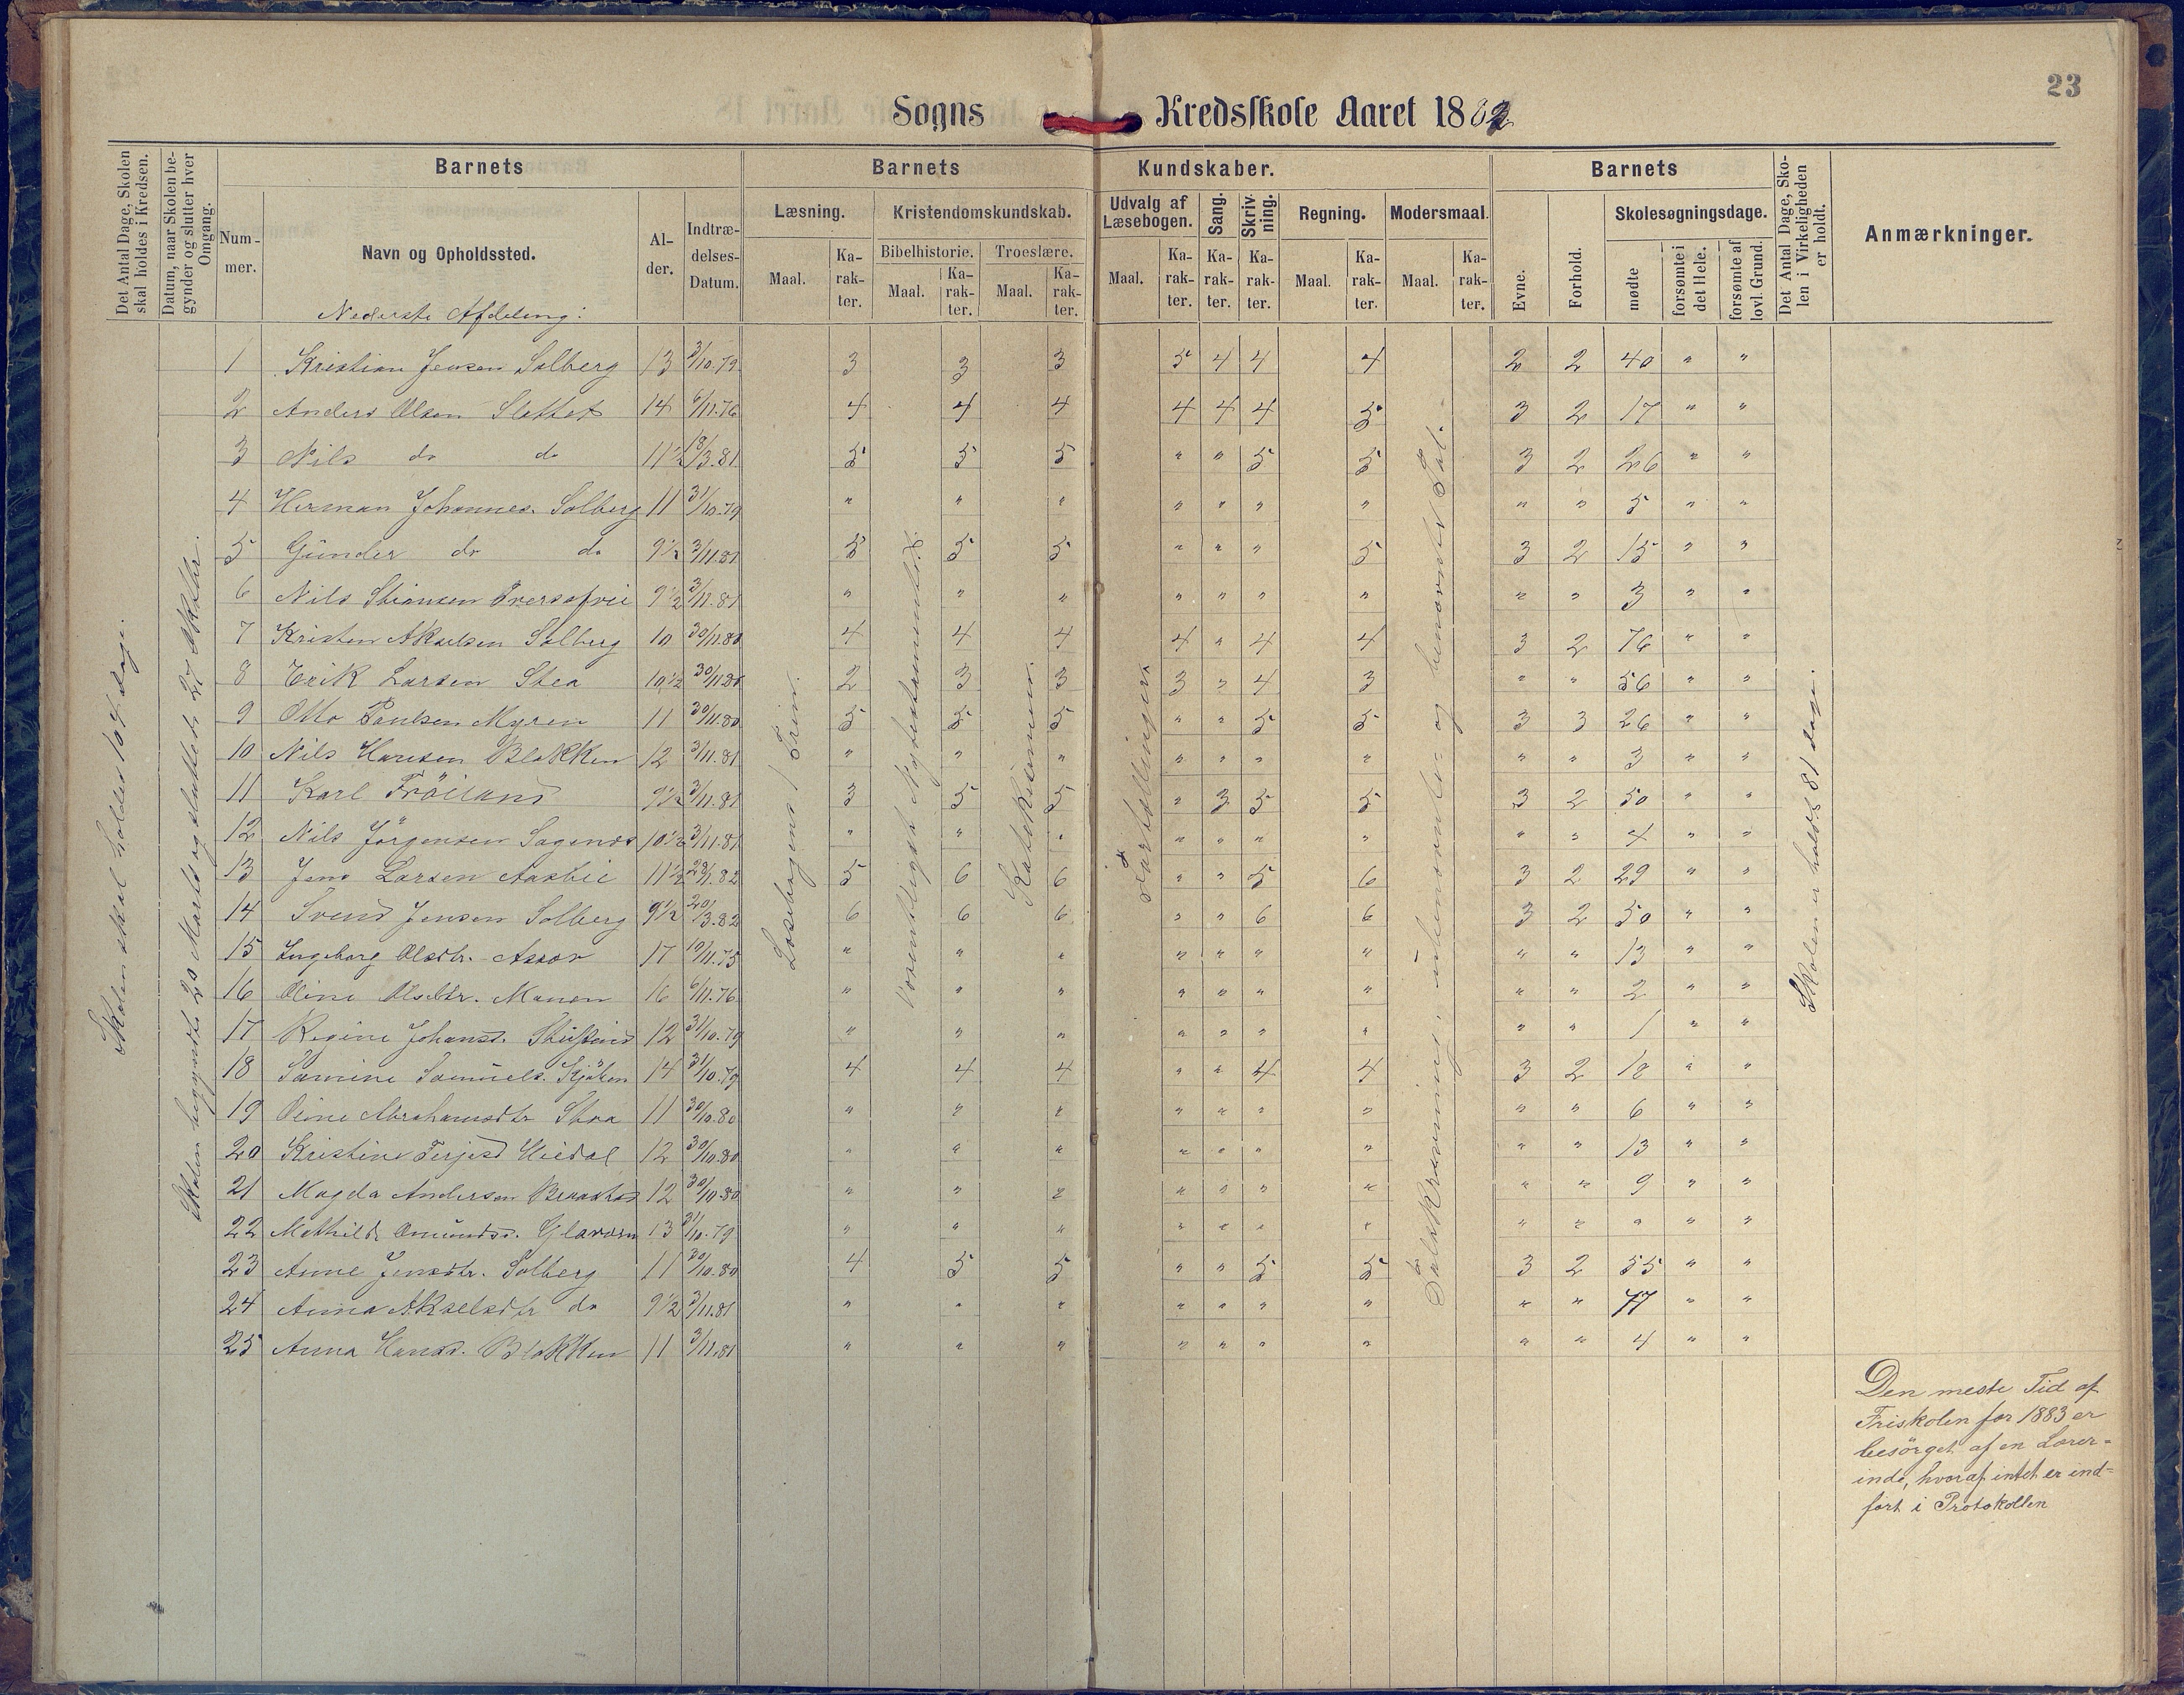 23
Sogns Kredsskole Aaret 1882
Det Antal Dage, Skolen skal holdes i Kredsen.
Datum, naar Skolen begynder og slutter hver Omgang.
Barnets
Nummer.
Navn og Opholdssted.
Alder.
Indtrædelses-Datum.
Barnets Kundskaber.
Læsning.
Maal.
Karakter.
Kristendomskundskab.
Bibelhistorie.
Maal.
Karakter.
Troeslære.
Maal.
Karakter.
Udvalg af Læsebogen.
Maal.
Karakter.
Sang.
Karakter.
Skrivning.
Karakter.
Regning.
Maal.
Karakter.
Modersmaal.
Maal.
Karakter.
Barnets
Evne.
Forhold.
Skolesøgningsdage.
mødte
forsømte i det Hele.
forsømte af lovl. Grund.
Det Antal Dage, Skolen i Virkeligheden er holdt.
Anmærkninger.
Nederste Afdeling:
1 Kristian Jensen Solberg 13 3/10.79 3 3 3 5 4 4 4 2 2 40 " "
2 Anders Olsen Slettet 14 6/11.76 4 4 4 4 4 4 5 3 2 17 " "
3 Nils do do 11½ 18/3.81 5 5 5 " " 5 5 3 2 26 " "
4 Herman Johannes. Solberg 11 31/10.79 " " " " " " " " " 5 " "
5 Günder do do 9½ 3/11.81 5 5 5 " " " 5 3 2 15 " "
6 Nils 9½ 3/11.81 " " " " " " " " " 3 " "
7 Kristen Akselsen Solberg 10 30/11.80 4 4 4 4 " 4 4 3 2 76 " "
8 Erik Larsen Stea 10½ 30/11.80 2 3 3 3 " 4 3 " " 56 " "
9 Otto Paulsen Myren 11 30/11.80 5 5 5 " " 5 5 3 3 26 " "
10 Nils Hansen Blakken 12 3/11.81 " " " " " " " " " 3 " "
11 Karl Fröiland 9½ 3/11.81 3 5 5 " 3 5 5 3 2 50 " "
12 Nils Jörgensen Sagenes 10½ 3/11.81 " " " " " " " " " 4 " "
13 Jens Larsen Aasbie 11½ 23/1.82 5 6 6 " " 5 6 3 2 29 " "
14 Svend Jensen Solberg 9½ 20/3.82 6 6 6 " " 6 6 3 2 50 " "
15 Ingeborg Olsdtr. 17 19/11.75 " " " " " " " " " 13 " "
16 Oline Olsdtr. Manen 16 6/11.76 " " " " " " " " " 2 " "
17 Regine Johansd. 12 31/10.79 " " " " " " " " " 1 " "
18 Samine Samuels. 14 31/10.79 4 4 4 " " 4 4 3 2 18 " "
19 Oline Abrahamsdtr Stea 11 30/10.80 " " " " " " " " " 6 " "
20 Kristine Terjesd 12 30/10.80 " " " " " " " " " 13 " "
21 Magda Andersen 12 30/10.80 " " " " " " " " " 9 " "
22 Mathilde Omundsd. 13 31/10.79 " " " " " " " " " " " "
23 Anne Jensdtr. Solberg 11 30/10.80 4 5 5 " " 5 5 3 2 55 " "
24 Anna Akselsdtr do 9½ 3/11.81 " " " " " " " " " 77 " "
25 Anna Hansd. Blakken 11 3/11.81 " " " " " " " " " 4 " "
Skolen skal holdes 104 dage.
Skolen begyndte 20 Marts og sluttet 27 Oktober.
Læsebogens 1 Trin.
Vexels Nytestamentlige
Katekismen.
Fortællinger
Talskrivning, ubenævnte og benævnte Tal.
Skolen er holdt 81 dage.
Den meste Tid af
Friskolen for 1883 er
besörget af en Lærer-
inde, hvoraf intet er ind-
fört i Protokollen